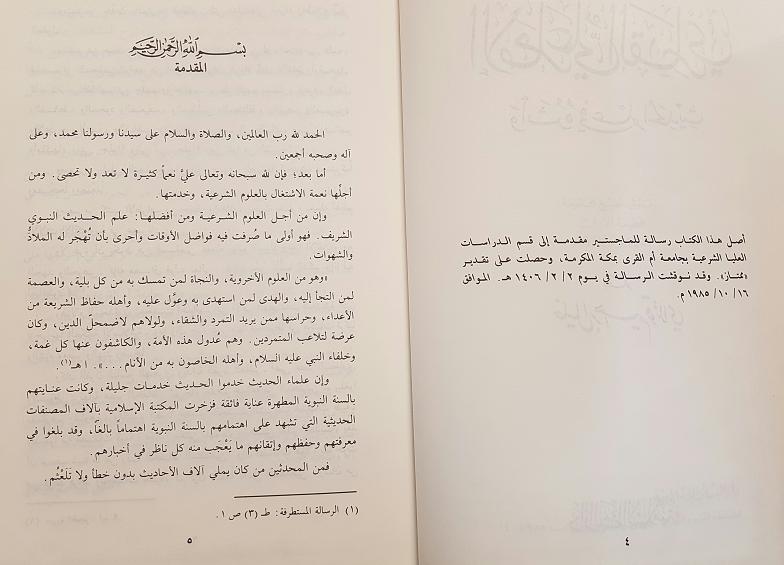 أصل هذا الكتاب رسالة للماجستير مقدمة إلى قسم الدراسات
العليا الشرعية بجامعة أم القرى بمكة المكرمة، وحصلت على تقدير
«ممتاز». وقد نوقشت الرسالة في يوم ٢ / ٢ / ١٤٠٦ هـ. الموافق
١٦ / ١٠ / ١٩٨٥ م.
٤
بسم الله الرحمن الرحيم
المقدمة
الحمد لله رب العالمين، والصلاة والسلام على سيدنا ورسولنا محمد، وعلى
آله وصحبه أجمعين.
أما بعد؛ فإن لله سبحانه وتعالى عليَّ نعماً كثيرة لا تعد ولا تحصى. ومن
أجلِّها نعمة الاشتغال بالعلوم الشرعية، وخدمتها.
وإن من أجل العلوم الشرعية ومن أفضلها: علم الحديث النبوي
الشريف. فهو أولى ما صُرفت فيه فواضل الأوقات وأحرى بأن تُهْجَر له الملاذُّ
والشهوات.
«وهو من العلوم الأخروية، والنجاة لمن تمسك به من كل بلية، والعصمة
لمن التجأ إليه، والهدى لمن استهدى به وعوَّل عليه، وأهله حفاظ الشريعة من
الأعداء، وحراسها ممن يريد التمرد والشقاء، ولولاهم لاضمحلّ الدين، وكان
عرضة لتلاعب المتمردين. وهم عُدول هذه الأمة، والكاشفون عنها كل غمة،
وخلفاء النبي عليه السلام، وأهله الخاصون به من الأنام ...». ا هـ(١).
وإن علماء الحديث خدموا الحديث خدمات جليلة، وكانت عنايتهم
بالسنة النبوية المطهرة عناية فائقة فزخرت المكتبة الإسلامية بآلاف المصنفات
الحديثية التي تشهد على اهتمامهم بالسنة النبوية اهتماماً بالغاً، وقد بلغوا في
معرفتهم وحفظهم وإتقانهم ما يَعْجَب منه كل ناظر في أخبارهم.
فمن المحدثين من كان يملي آلاف الأحاديث بدون خطأ ولا تَلَعْثُم.
(١) الرسالة المستطرفة: طـ (٣) ص ١.
٥